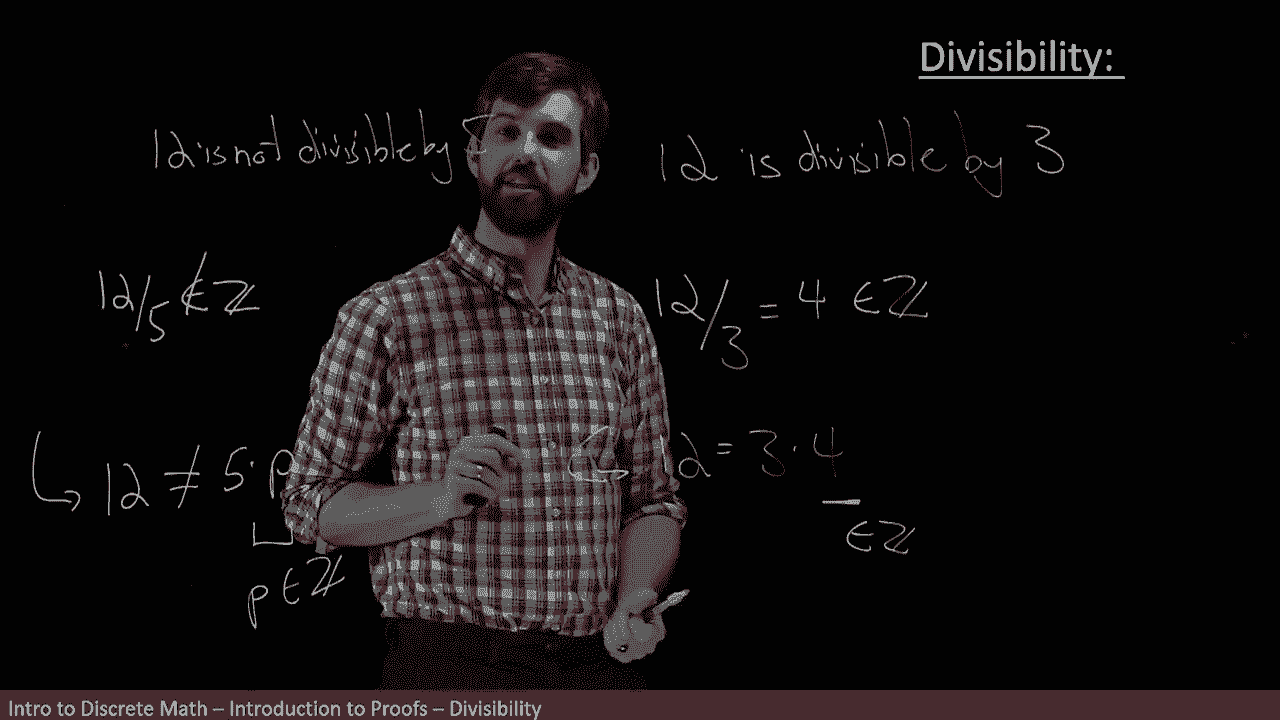 Divisibility:
12 is not divisible by 5
12 is divisible by 3
12/5 ∉ ℤ
12/3 = 4 ∈ ℤ
12 ≠ 5·p
12 = 3·4
p ∈ ℤ
∈ ℤ
Intro to Discrete Math – Introduction to Proofs – Divisibility